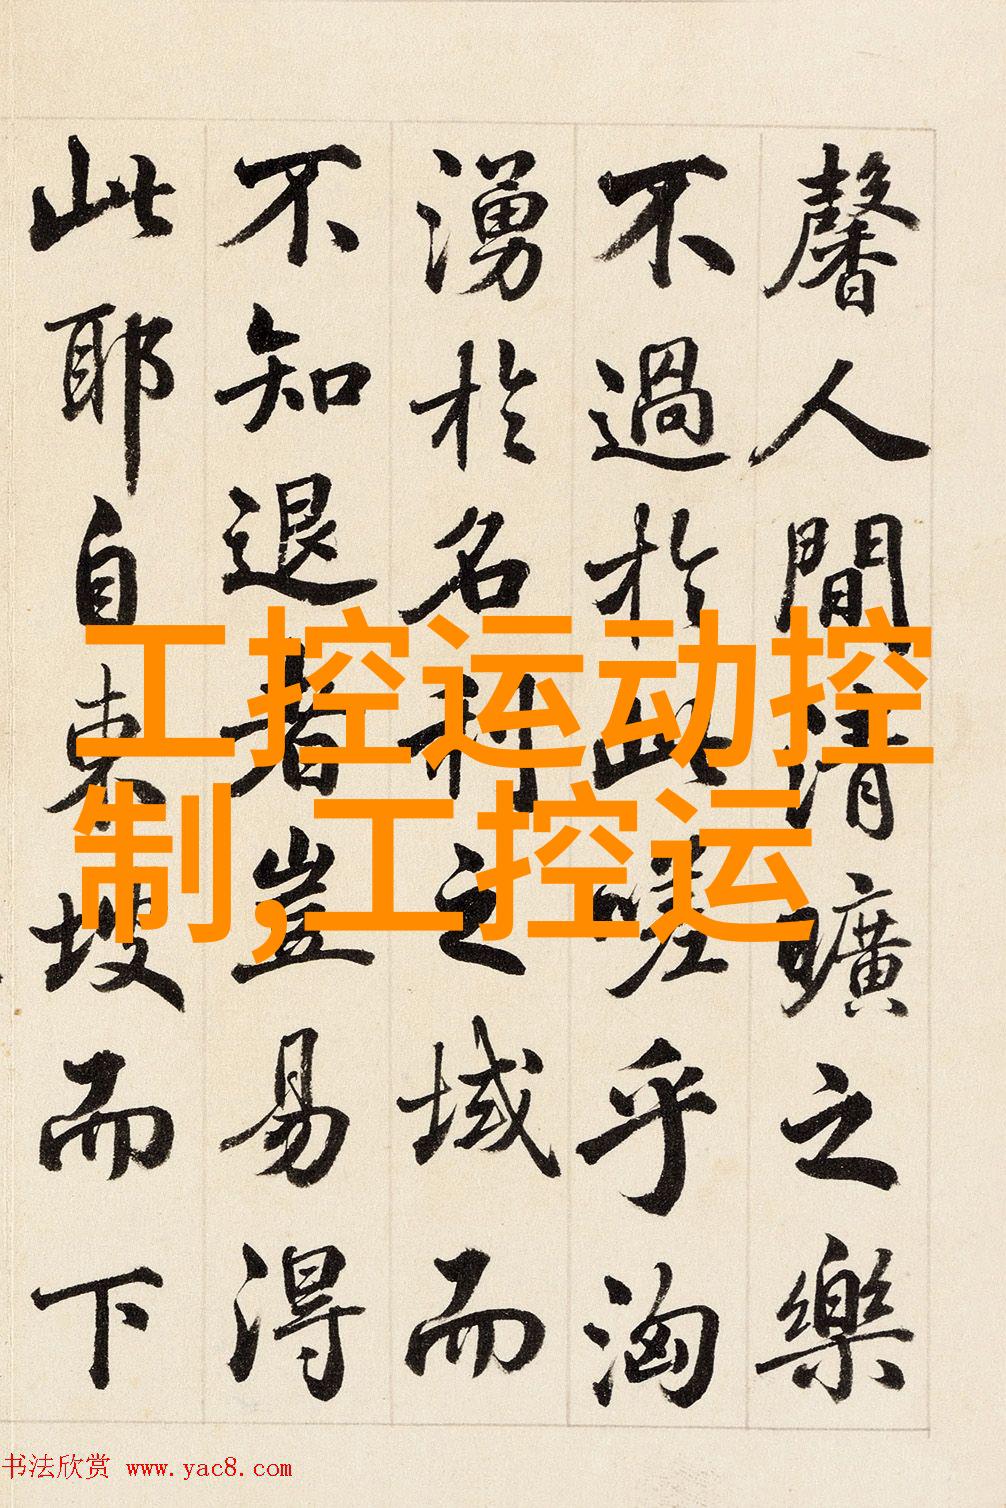 馨人間清曠之樂
不過於此嗟乎洶
湧於名利之域而
不知退者豈易得
此耶自東坡而下
工控运动控
制,工控运
书法欣赏 www.yac8.com